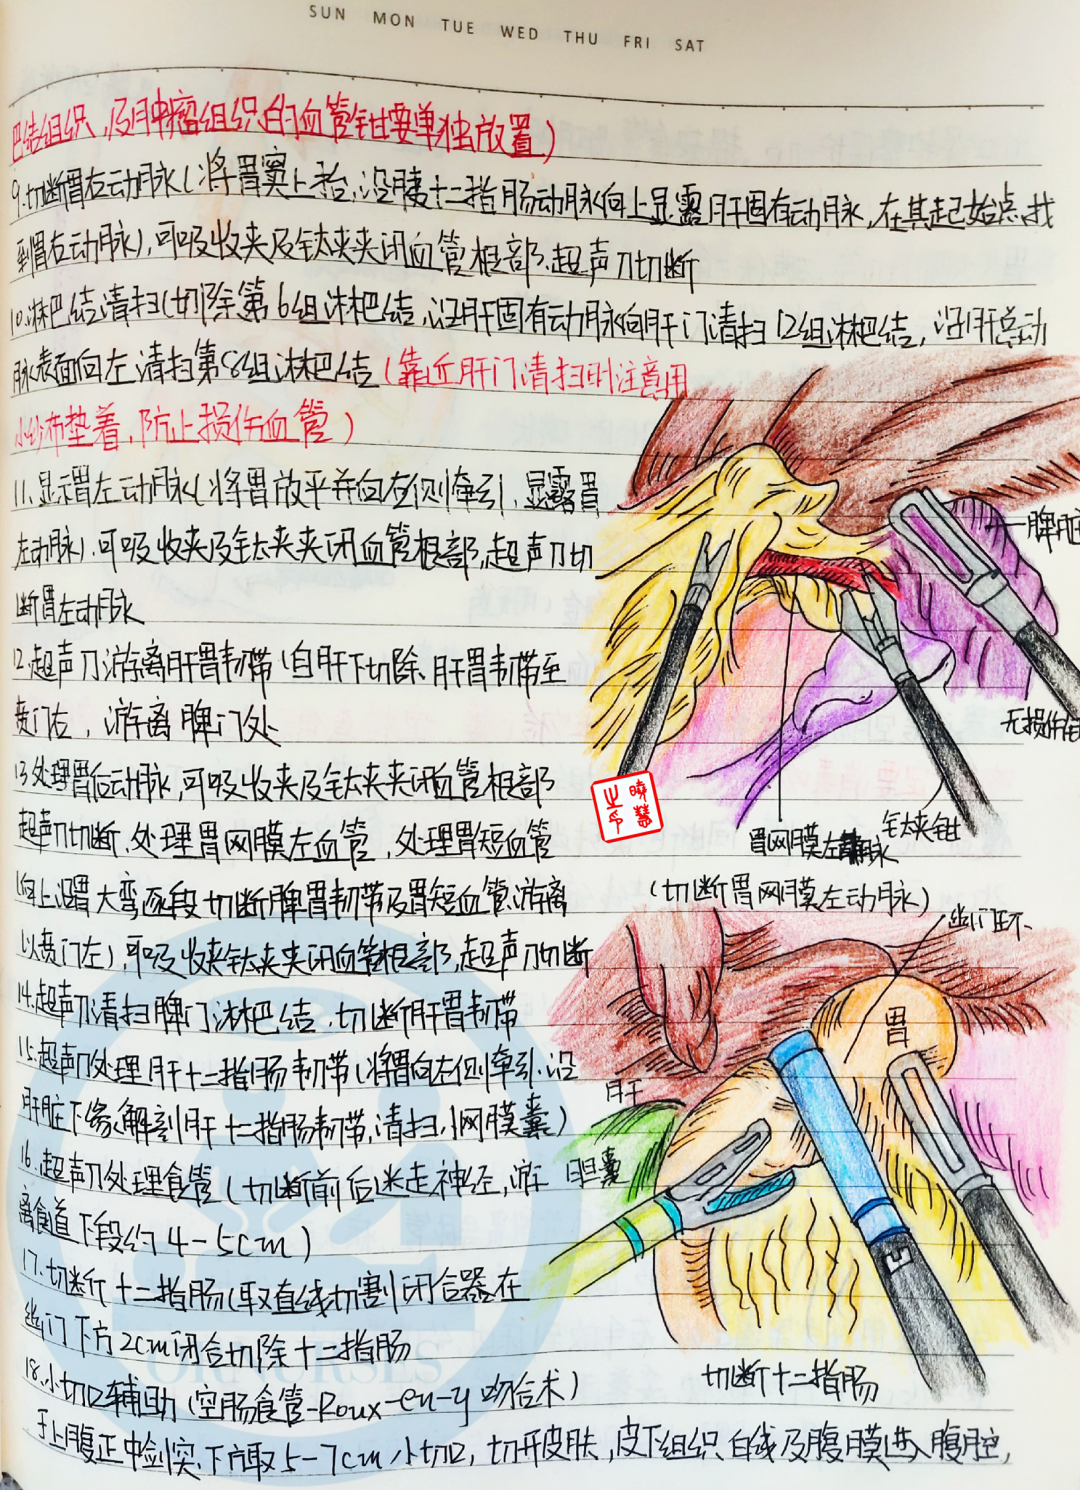 SUN MON TUE WED THU FRI SAT
巴结组织,及肿瘤组织的血管钳要单独放置)
9.切断胃右动脉(将胃窦上抬,沿胰十二指肠动脉向上显露肝固有动脉,在其起始点找
到胃右动脉),可吸收夹及钛夹夹闭血管根部,超声刀切断
10.淋巴结清扫(切除第6组淋巴结,沿肝固有动脉向肝门清扫12组淋巴结,沿肝总动
脉表面向左清扫第8组淋巴结(靠近肝门清扫时注意用
小纱布垫着,防止损伤血管)
11.显示胃左动脉(将胃放平并向右侧牵引,显露胃
左动脉),可吸收夹及钛夹夹闭血管根部,超声刀切
断胃左动脉
12.超声刀游离肝胃韧带(自肝下切除肝胃韧带至
贲门右,游离脾门处
13.处理胃后动脉,可吸收夹及钛夹夹闭血管根部
超声刀切断,处理胃网膜左血管,处理胃短血管
(向上沿胃大弯逐段切断脾胃韧带及胃短血管,游离
以贲门左),可吸收夹钛夹夹闭血管根部,超声刀切断
14.超声刀清扫脾门淋巴结,切断肝胃韧带
15.超声刀处理肝十二指肠韧带(将胃向左侧牵引,沿
肝脏下缘解剖肝十二指肠韧带,清扫小网膜囊)
16.超声刀处理食管(切断前后迷走神经,游
离食道下段约4-5cm)
17.切断十二指肠(取直线切割闭合器在
幽门下方2cm闭合切除十二指肠
18.小切口辅助(空肠食管-Roux-en-y吻合术)
于上腹正中剑突下方取5-7cm小切口,切开皮肤,皮下组织,白线及腹膜进入腹腔,
脾脏
无损伤钳
钛夹钳
胃网膜左动脉
曉慧
之印
(切断胃网膜左动脉)
幽门环
胃
肝
胆囊
切断十二指肠
OR NURSES